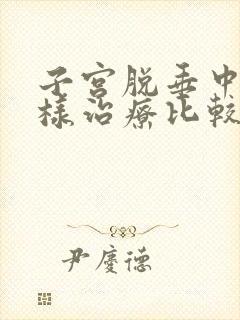 子宫脱垂中
樣治療比較
尹慶德